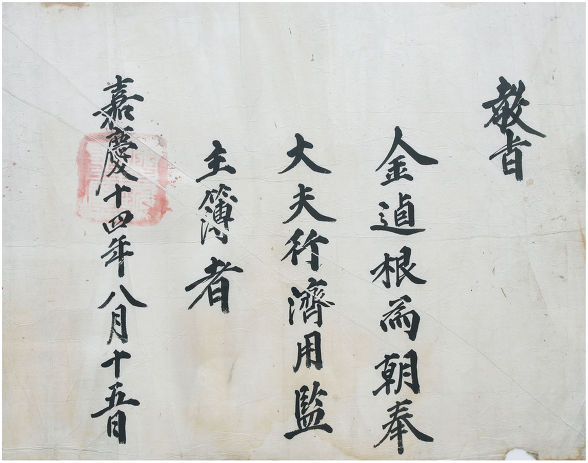 敎旨
金逌根爲朝奉
大夫行濟用監
主簿者
嘉慶十四年八月十五日